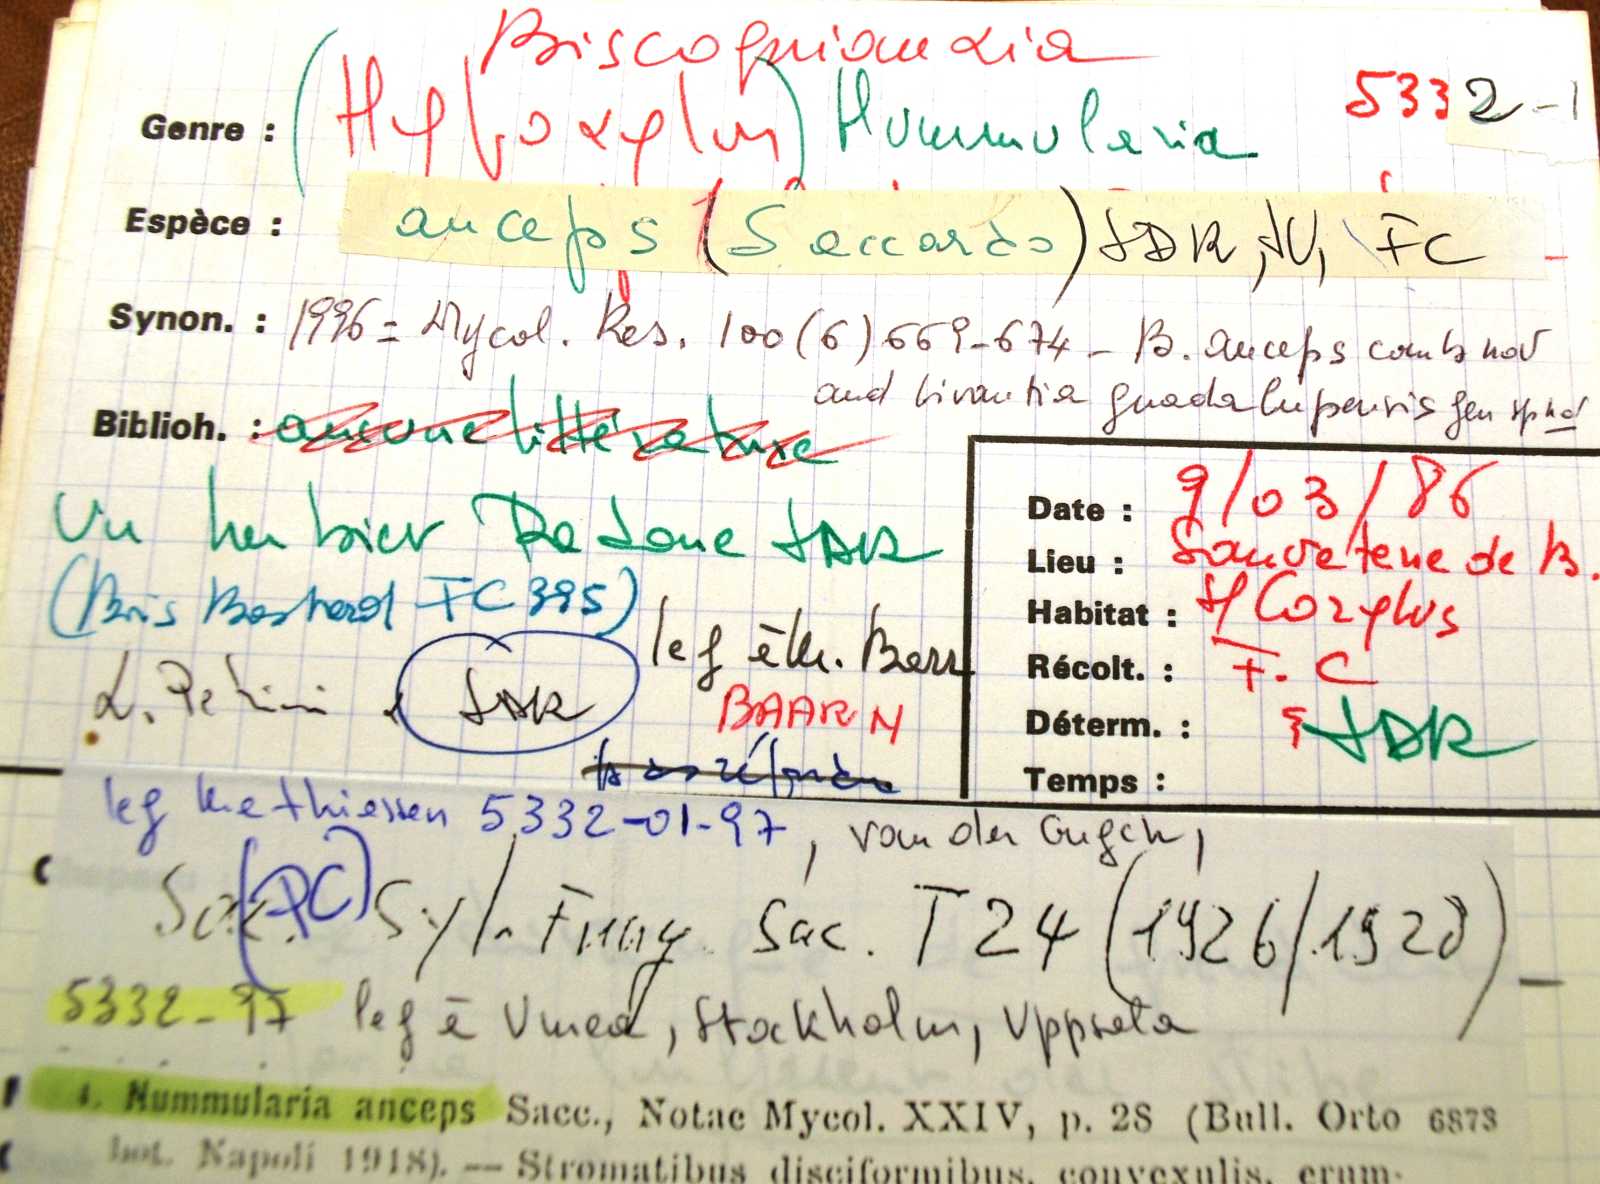 Biscogniauxia
5332-1
Genre : (Hypoxylon) Nummularia
Espèce : anceps (Saccardo) JDR, JV, FC
Synon. : 1996 = Mycol. Res. 100(6) 669-674 - B. anceps comb nov
and Vivantia guadalupensis gen sp nov
Biblioh. : aucune littérature
in herbier Padoue JDR
(Bois Bashard FC 395)
leg à M. Barr
L. Petrini & JDR
BAARN
Date : 9/03/86
Lieu : Sauveterre de B.
Habitat : Corylus
Récolt. : F. C
Déterm. : JDR
Temps :
leg Mathiassen 5332-01-97, van der Gugch,
Sac. (PC) Syl. Fung. Sac. T 24 (1926/1928)
5332-97 leg à Umea, Stockholm, Uppsala
1. Nummularia anceps Sacc., Notae Mycol. XXIV, p. 28 (Bull. Orto 6873
bot. Napoli 1918). — Stromatibus disciformibus, convexulis, erum-